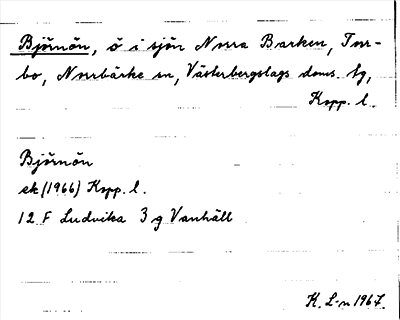 Björnön, ö i sjön Norra Barken, Tur-
bo, Norrbärke sn, Västerbergslags doms. tg,
Kopp. l.
Björnön
ek (1966) Kopp. l.
12 F Ludvika 3 g Vanhäll
K. L-n 1967.